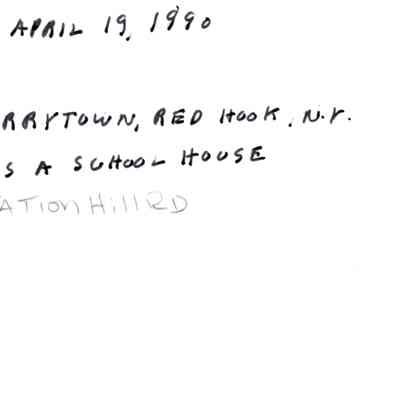 APRIL 19, 1990
RRYTOWN, RED HOOK, N.Y.
S A SCHOOL HOUSE
ATION Hill RD